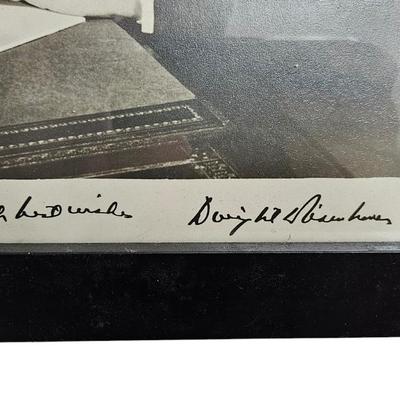 best wishes Dwight D Eisenhower